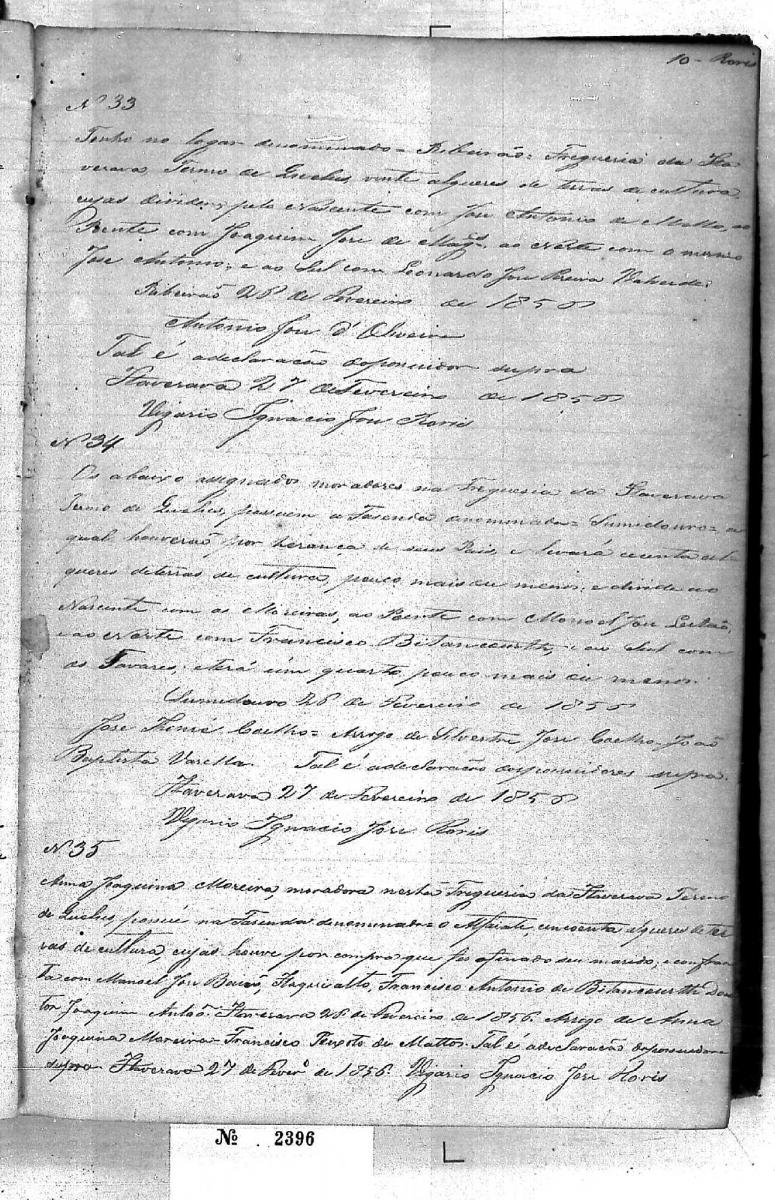 10 - Roris
Nº 33
Tenho no logar denominado = Ribeirão = Freguesia da Ita
verava, Termo de Queluz, vinte alqueres de terras de cultura,
cujas dividem pelo Nascente com José Antonio de Mattos, ao
Poente com Joaquim José de Magᵈˢ, ao Norte com o mesmo
José Antonio, e ao Sul com Leonardo José Pereira
Ribeirão 26 de Fevereiro de 1856
Antonio José d'Oliveira
Tal é a declaração do possuidor supra
Itaverava 27 de Fevereiro de 1856
Vigario Ignacio José Roris
Nº 34
Os abaixo assignados moradores na Freguesia da Itaverava
Termo de Queluz, possuem a Fasenda denominada = Sumidouro = a
qual houverão por herança de seus Pais, e levará cecenta al
queres de terras de cultura, pouco mais ou menos; e divide ao
Nascente com os Moreiras, ao Poente com Manoel José Leitão,
e ao Norte com Francisco Bitancourth, e ao Sul com
os Tavares; e terá um quarto pouco mais ou menos.
Sumidouro 26 de Fevereiro de 1856
José Thomé Coelho = Arrogo de Silvestre José Coelho, João
Baptista Varella. Tal é a declaração dos possuidores supra.
Itaverava 27 de Fevereiro de 1856
Vigario Ignacio José Roris
Nº 35
Anna Joaquina Moreira, moradora nesta Freguesia da Itaverava Termo
de Queluz, possue na Fasenda denominada = o Alfaiate, cincoenta alqueres de ter
ras de cultura, cujas houve por compra que fes o finado seu marido, e confron
ta com Manoel José, Francisco Antonio de Bitancourth Dou
tor Joaquim Antão. Itaverava 26 de Fevereiro de 1856. Arrogo de Anna
Joaquina Moreira = Francisco Teixoto de Mattos. Tal é a declaração da possuidora
supra Itaverava 27 de Feverº de 1856. Vigario Ignacio José Roris
Nº 2396